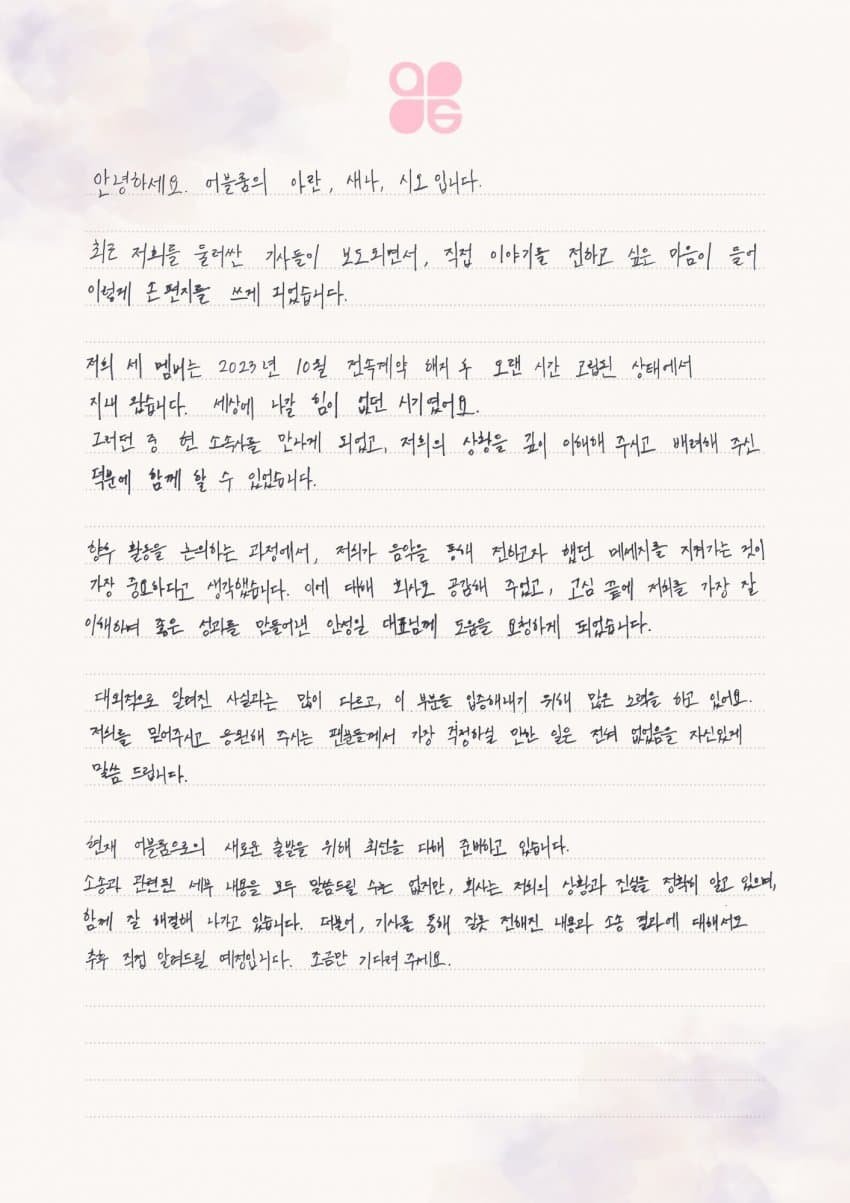 안녕하세요. 어블룸의 아란, 새나, 시오 입니다.
최근 저희를 둘러싼 기사들이 보도되면서, 직접 이야기를 전하고 싶은 마음이 들어
이렇게 손편지를 쓰게 되었습니다.
저희 세 멤버는 2023년 10월 전속계약 해지 후 오랜 시간 고립된 상태에서
지내 왔습니다. 세상에 나갈 힘이 없던 시기였어요.
그러던 중 현 소속사를 만나게 되었고, 저희의 상황을 깊이 이해해 주시고 배려해 주신
덕분에 함께 할 수 있었습니다.
향후 활동을 논의하는 과정에서, 저희가 음악을 통해 전하고자 했던 메세지를 지켜가는 것이
가장 중요하다고 생각했습니다. 이에 대해 회사도 공감해 주었고, 고심 끝에 저희를 가장 잘
이해하며 좋은 성과를 만들어낸 안성일 대표님께 도움을 요청하게 되었습니다.
대외적으로 알려진 사실과는 많이 다르고, 이 부분을 입증해내기 위해 많은 노력을 하고 있어요.
저희를 믿어주시고 응원해 주시는 팬분들께서 가장 걱정하실 만한 일은 전혀 없었음을 자신있게
말씀 드립니다.
현재 어블룸으로의 새로운 출발을 위해 최선을 다해 준비하고 있습니다.
소송과 관련된 세부 내용을 모두 말씀드릴 수는 없지만, 회사는 저희의 상황과 진실을 정확히 알고 있으며,
함께 잘 해결해 나가고 있습니다. 더불어, 기사를 통해 잘못 전해진 내용과 소송 결과에 대해서도
추후 직접 알려드릴 예정입니다. 조금만 기다려 주세요.